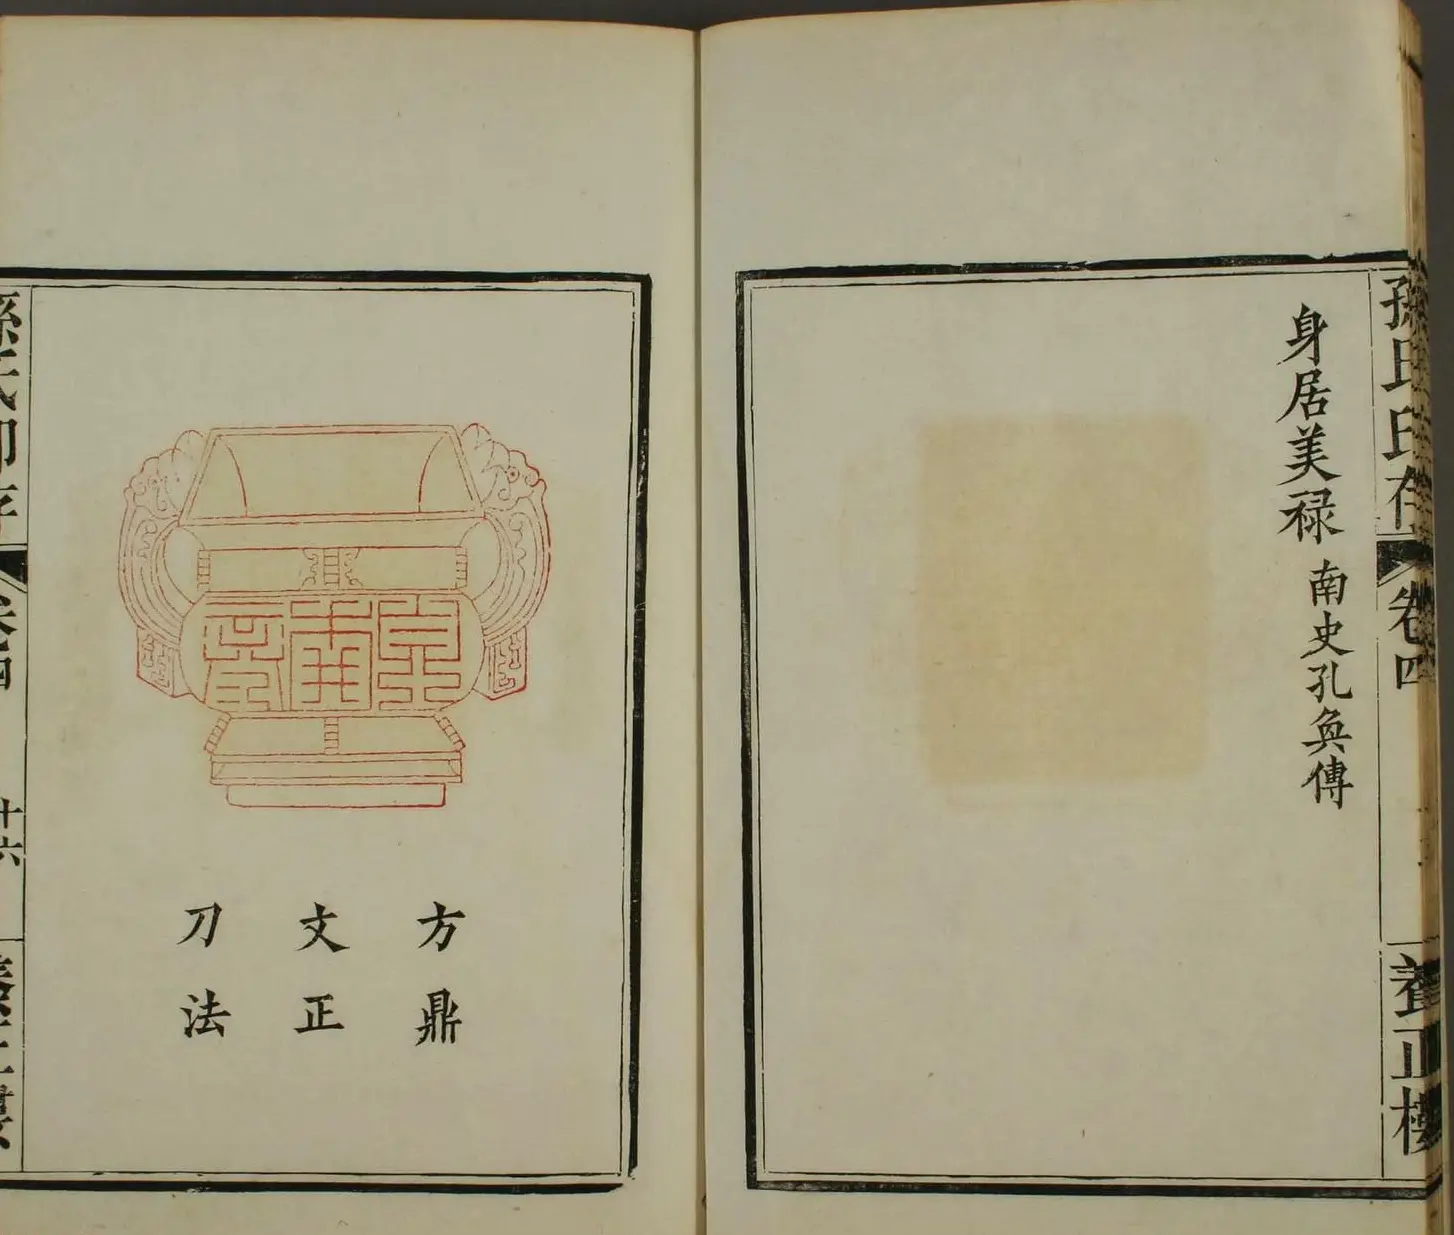 孫氏印存
卷四
養正樓
身居美祿 南史孔奐傳
方鼎
文正
刀法
孫氏印存
卷四
十六
養正樓